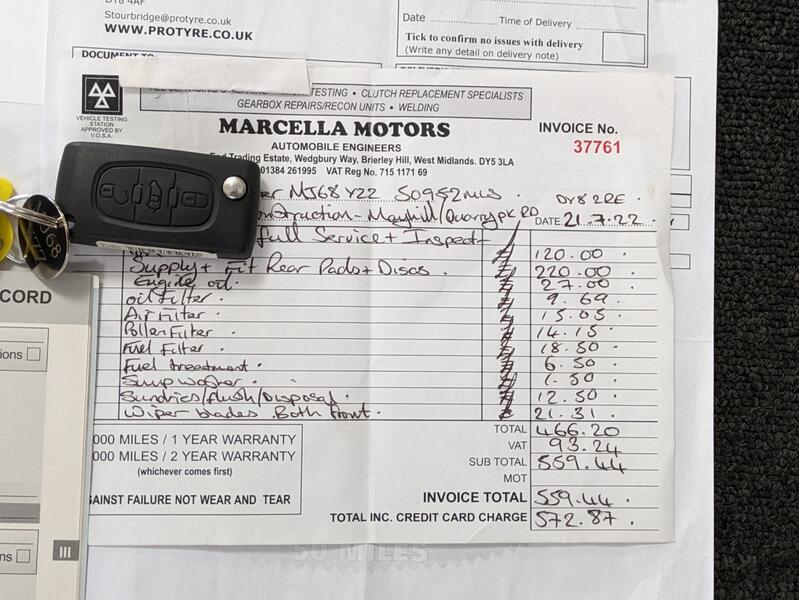 DY8 4AF
Stourbridge@protyre.co.uk
WWW.PROTYRE.CO.UK
Date Time of Delivery
Tick to confirm no issues with delivery
(Write any detail on delivery note)
DOCUMENT TO
TESTING • CLUTCH REPLACEMENT SPECIALISTS
GEARBOX REPAIRS/RECON UNITS • WELDING
VEHICLE TESTING
STATION
APPROVED BY
V.O.S.A.
MARCELLA MOTORS
AUTOMOBILE ENGINEERS
End Trading Estate, Wedgbury Way, Brierley Hill, West Midlands. DY5 3LA
01384 261995 VAT Reg No. 715 1171 69
INVOICE No.
37761
er MJ68 YZZ 50952 mls DY8 2RE.
onstruction - Mayhill/Quarry PK RD DATE 21.7.22.
full Service + Inspect 120.00
Supply + Fit Rear Pads + Discs. £ 220.00
Engine oil. £ 27.00
oil Filter. £ 9.69
Air Filter. £ 15.05
Pollen Filter £ 14.15
Fuel Filter. £ 18.50
Fuel treatment. £ 6.50
Sump washer. £ 1.50
Sundries/flush/Disposal. £ 12.50
Wiper blades. Both front. £ 21.31
TOTAL 466.20
VAT 93.24
SUB TOTAL 559.44
MOT
INVOICE TOTAL 559.44
TOTAL INC. CREDIT CARD CHARGE 572.87
000 MILES / 1 YEAR WARRANTY
000 MILES / 2 YEAR WARRANTY
(whichever comes first)
GAINST FAILURE NOT WEAR AND TEAR
CORD
ions
ns
III
50 MILES